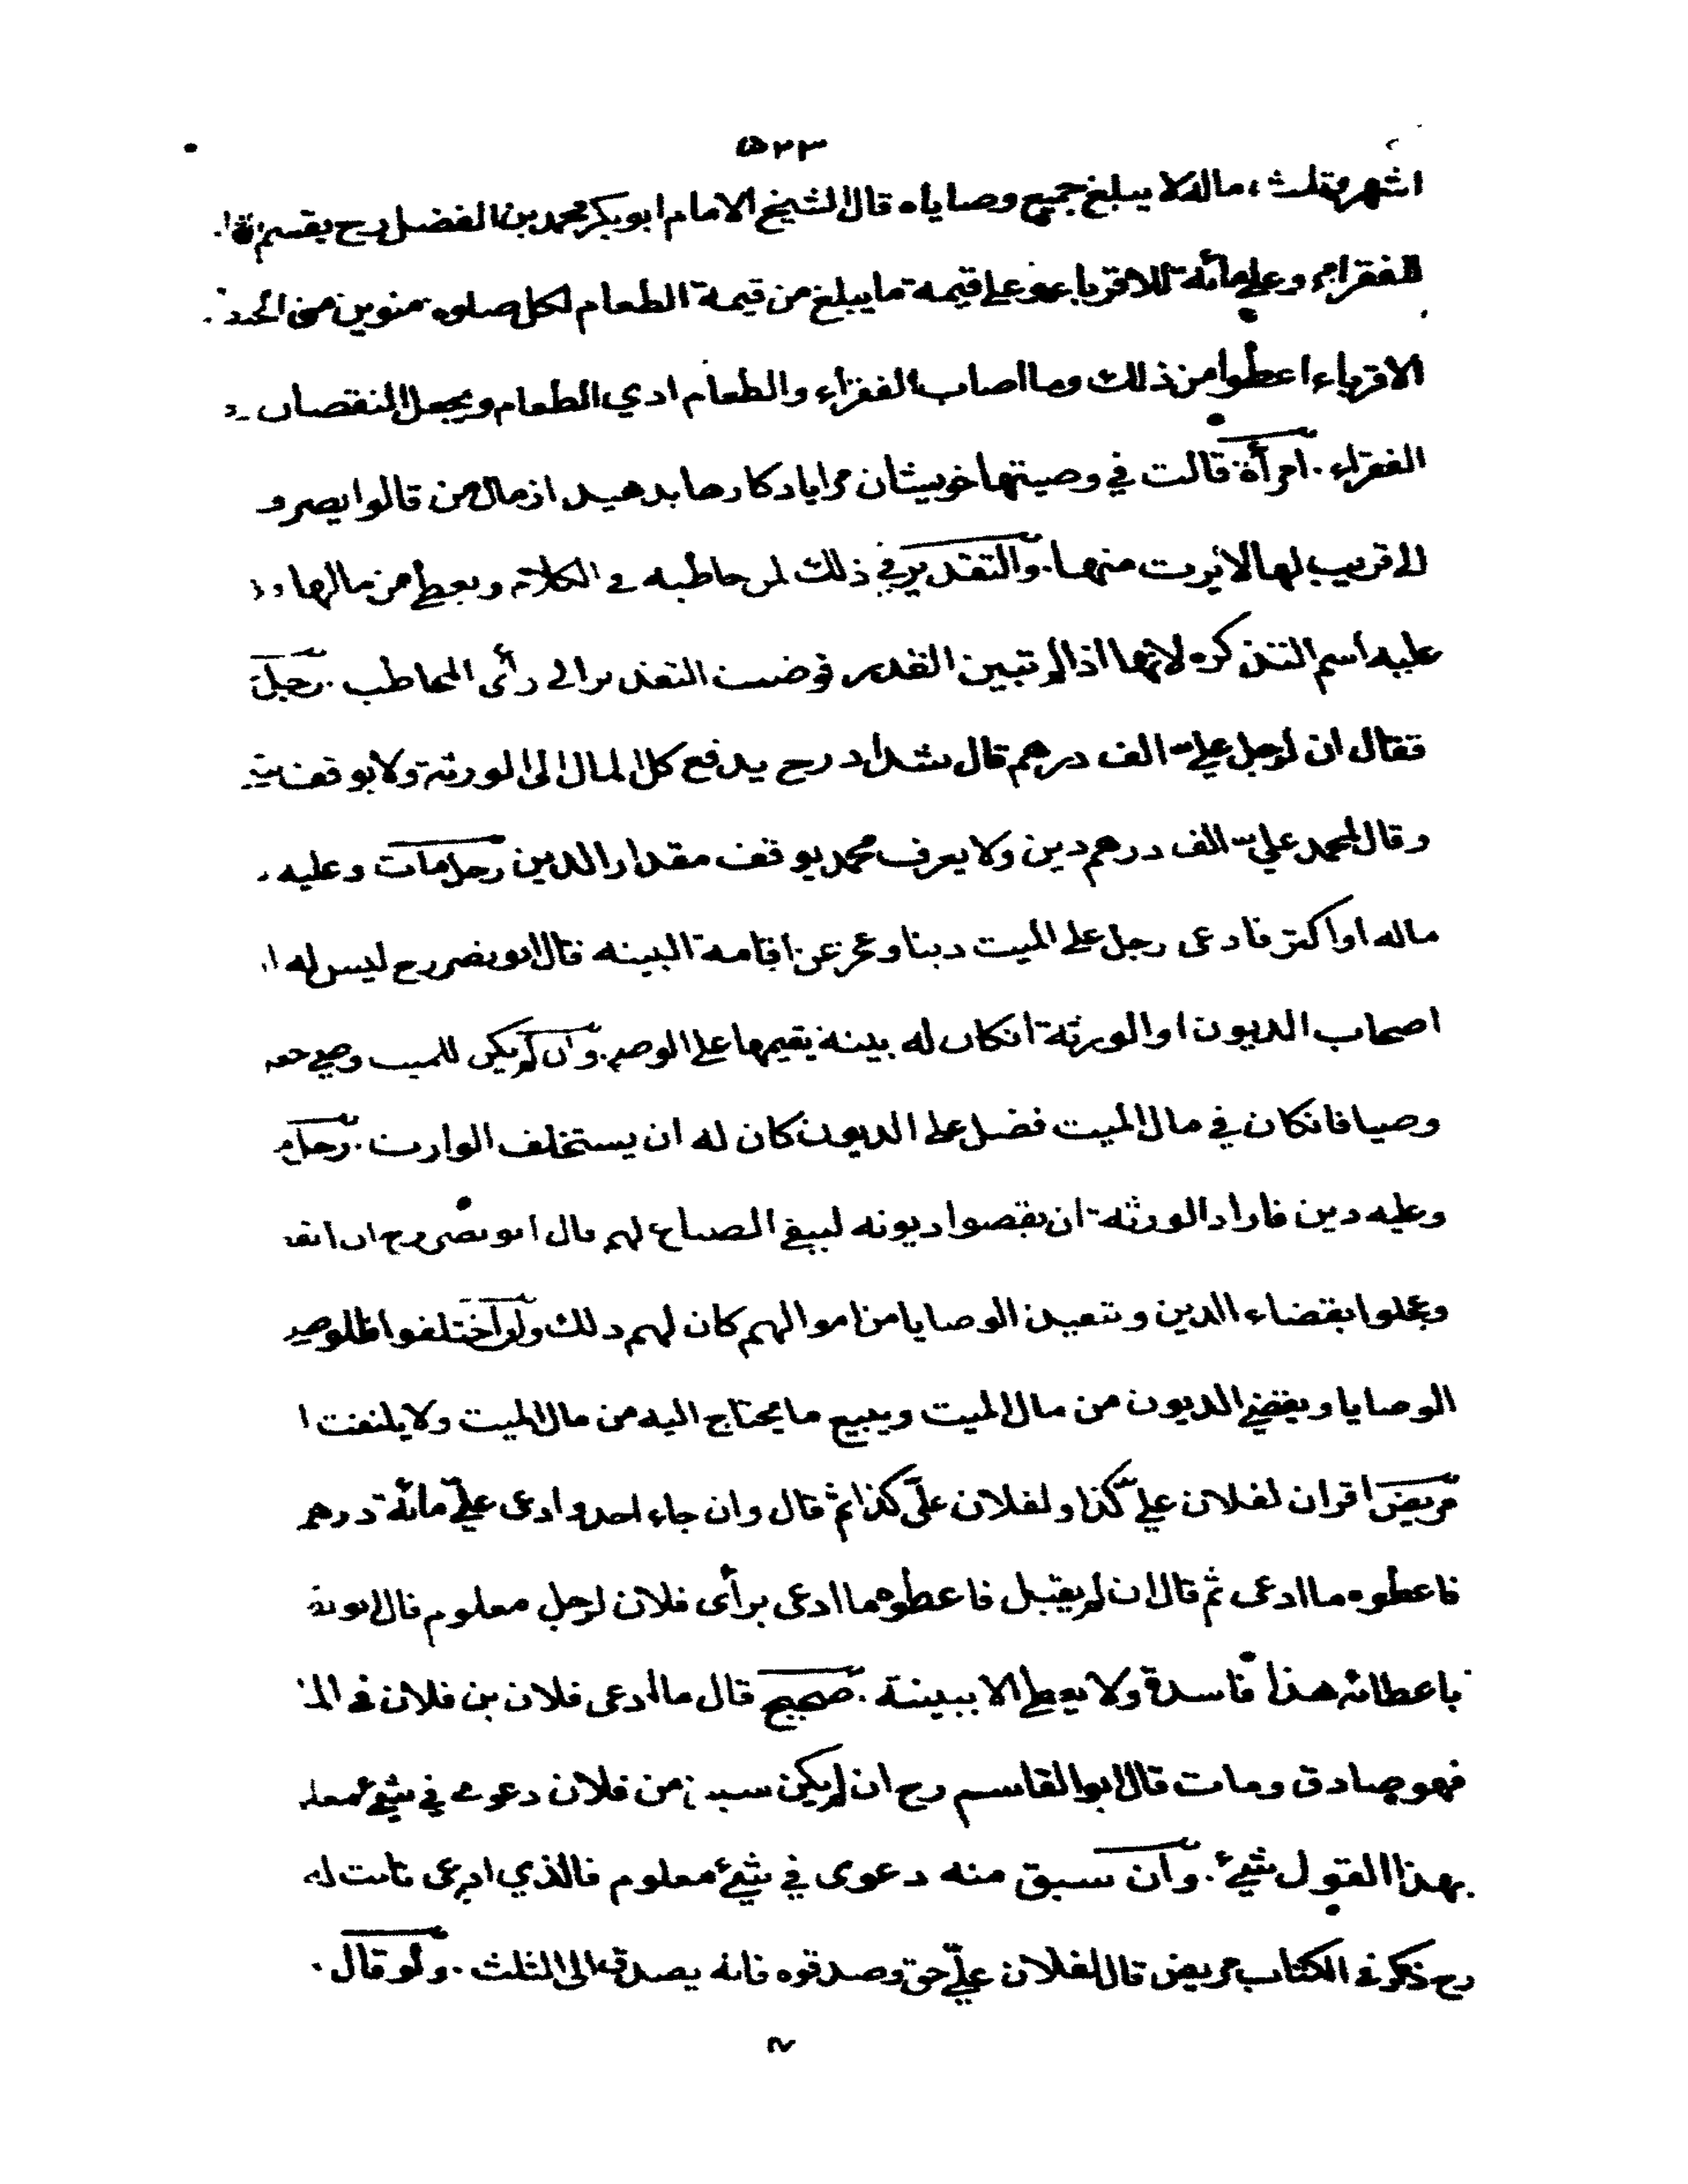 ۵۲۳
اشهر وثلث ماله لا يبلغ جميع وصاياه قال الشيخ الامام ابو بكر محمد بن الفضل رح يقسم
للفقراء وعلى مائة للاقرباء وعلى قيمة ما يبلغ من قيمة الطعام لكل صلوه منوين من
الاقرباء اعطوا من ذلك وما اصاب الفقراء والطعام ادي الطعام ويجعل النقصان
الفقراء . امرأة قالت في وصيتها خويشان مرا يادكارها بدهيد از مال من قالوا يصرف
الى قريب لها لا يرث منها . والتقدير في ذلك لمن خاطبه في الكلام ويعطى من مالها
عليه اسم التذكره لانها اذا لم تبين القدر فوضت التقدير الى رأى المخاطب . رجل
فقال ان لرجل علي الف درهم قال شداد رح يدفع كل المال الى الورثة ولا يوقف
وقال لمحمد علي الف درهم دين ولا يعرف محمد يوقف مقدار الدين رجل مات وعليه
ماله او اكثر فادعى رجل على الميت دينا وعجز عن اقامة البينه قال ابو نصر رح ليس له
اصحاب الديون او الورثة انكان له بينة يقيمها على الوصي . وان لم يكن للميت وصي
وصيا فانكان في مال الميت فضل على الديون كان له ان يستخلف الوارث . رجل
وعليه دين فاراد الورثة ان يقضوا ديونه ليبقى الضياع لهم قال ابو نصر رح ان
وعجلوا بقضاء الدين وتنفيذ الوصايا من اموالهم كان لهم ذلك ولو اختلفوا فللوصي
الوصايا ويقضي الديون من مال الميت ويبيع ما يحتاج اليه من مال الميت ولا يلتفت ا
مريض اقر ان لفلان عليّ كذا ولفلان عليّ كذا ثم قال وان جاء احد وادعى عليّ مائة درهم
فاعطوه ما ادعى ثم قال ان لم يقبل فاعطوه ما ادعى برأى فلان لرجل معلوم قال ابو
باعطائه هذا فاسدة ولا يعطى الا ببينة . صحيح قال ما ادعى فلان بن فلان في
فهو صادق ومات قال ابو القاسم رح ان لم يكن سبق من فلان دعوى في شيئ
بهذا القول شيئ . وان سبق منه دعوى في شيئ معلوم فالذي ادعى ثابت له
رح ذكر في الكتاب مريض قال لفلان عليّ حق وصدقوه فانه يصدق الى الثلث . ولو قال